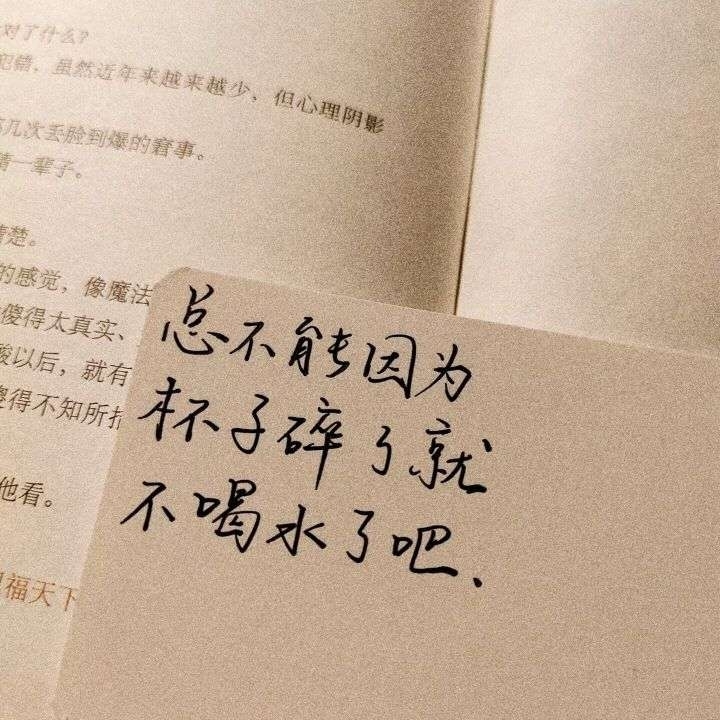 对了什么？
犯错，虽然近年来越来越少，但心理阴影
几次丢脸到爆的窘事。
一辈子。
清楚。
的感觉，像魔法
傻得太真实、
酸以后，就有
傻得不知所措
他看。
福天下
总不能因为
杯子碎了就
不喝水了吧、